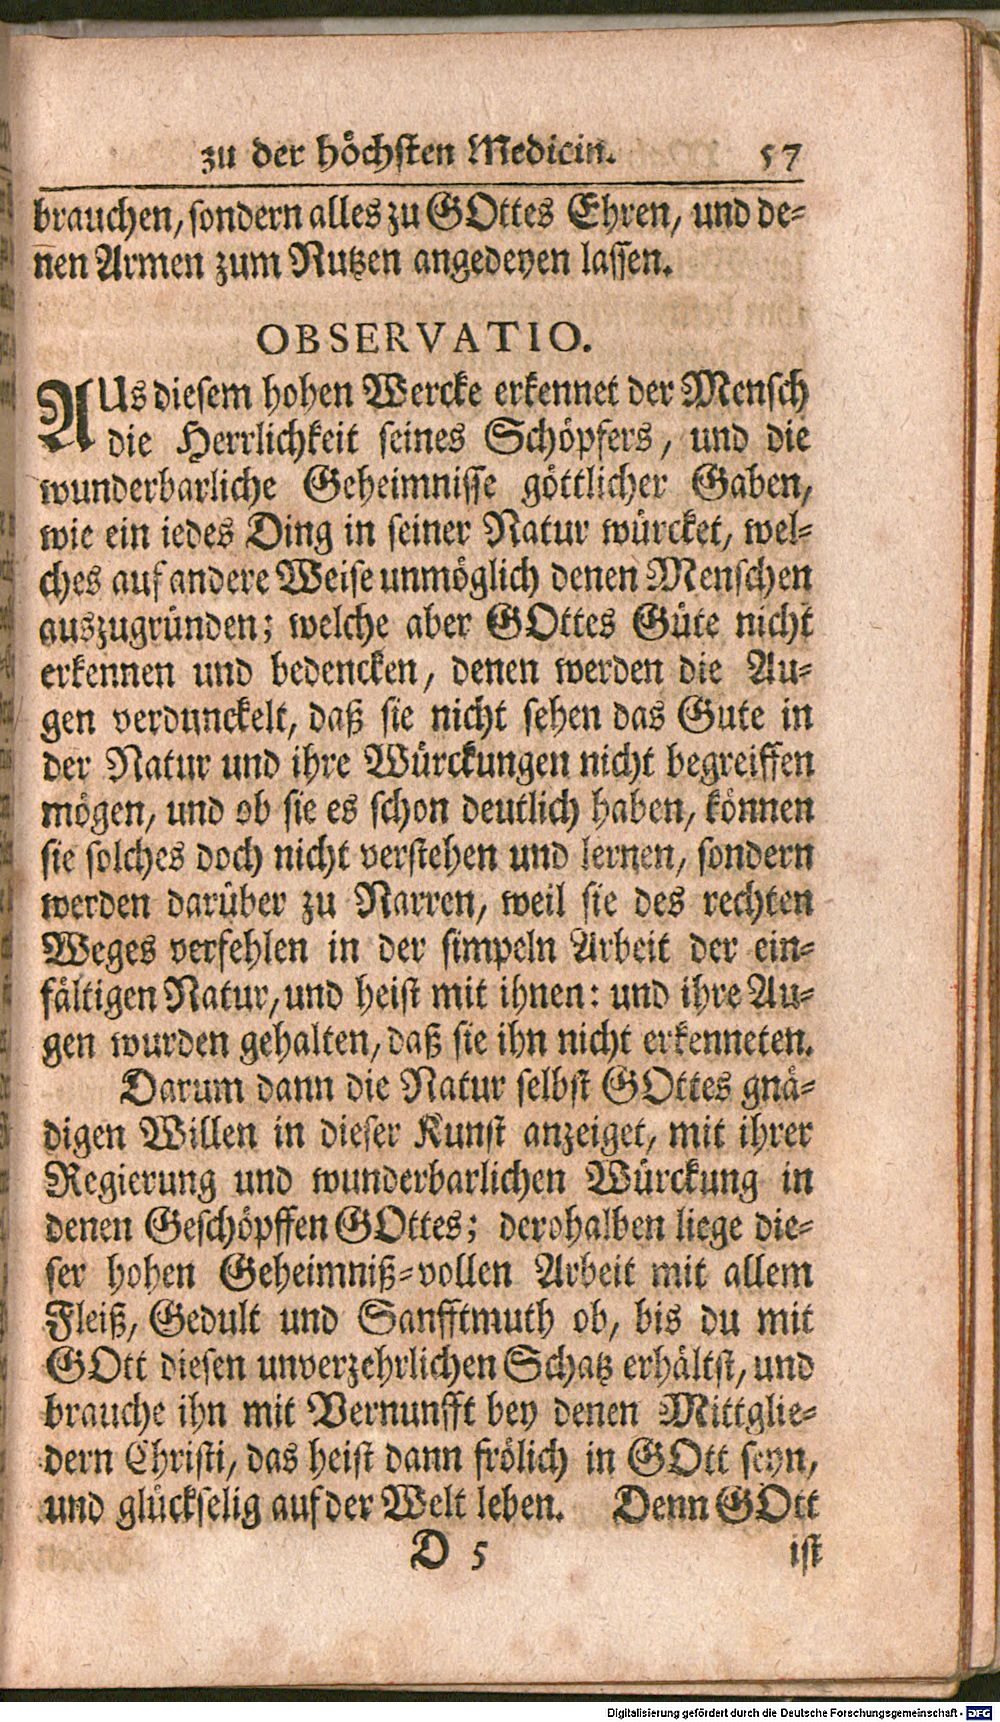 zu der höchsten Medicin. 57
brauchen, sondern alles zu GOttes Ehren, und de-
nen Armen zum Nutzen angedeyen lassen.
OBSERVATIO.
AUs diesem hohen Wercke erkennet der Mensch
die Herrlichkeit seines Schöpfers, und die
wunderbarliche Geheimnisse göttlicher Gaben,
wie ein iedes Ding in seiner Natur würcket, wel-
ches auf andere Weise unmöglich denen Menschen
auszugründen; welche aber GOttes Güte nicht
erkennen und bedencken, denen werden die Au-
gen verdunckelt, daß sie nicht sehen das Gute in
der Natur und ihre Würckungen nicht begreiffen
mögen, und ob sie es schon deutlich haben, können
sie solches doch nicht verstehen und lernen, sondern
werden darüber zu Narren, weil sie des rechten
Weges verfehlen in der simpeln Arbeit der ein-
fältigen Natur, und heist mit ihnen: und ihre Au-
gen wurden gehalten, daß sie ihn nicht erkenneten.
Darum dann die Natur selbst GOttes gnä-
digen Willen in dieser Kunst anzeiget, mit ihrer
Regierung und wunderbarlichen Würckung in
denen Geschöpffen GOttes; derohalben liege die-
ser hohen Geheimniß-vollen Arbeit mit allem
Fleiß, Gedult und Sanfftmuth ob, bis du mit
GOtt diesen unverzehrlichen Schatz erhältst, und
brauche ihn mit Vernunfft bey denen Mittglie-
dern Christi, das heist dann frölich in GOtt seyn,
und glückselig auf der Welt leben. Denn GOtt
D 5 ist
Digitalisierung gefördert durch die Deutsche Forschungsgemeinschaft - DFG